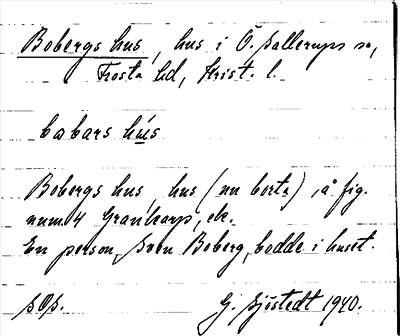 Bobergs hus, hus i Ö. Sallerups sn,
Frosta hd, Krist. l.
babars hus
Bobergs hus, hus (nu borta), å fig.
num 4 Gravikarp, ek.
En person, Sven Boberg, bodde i huset.
G. Sjöstedt 1940.